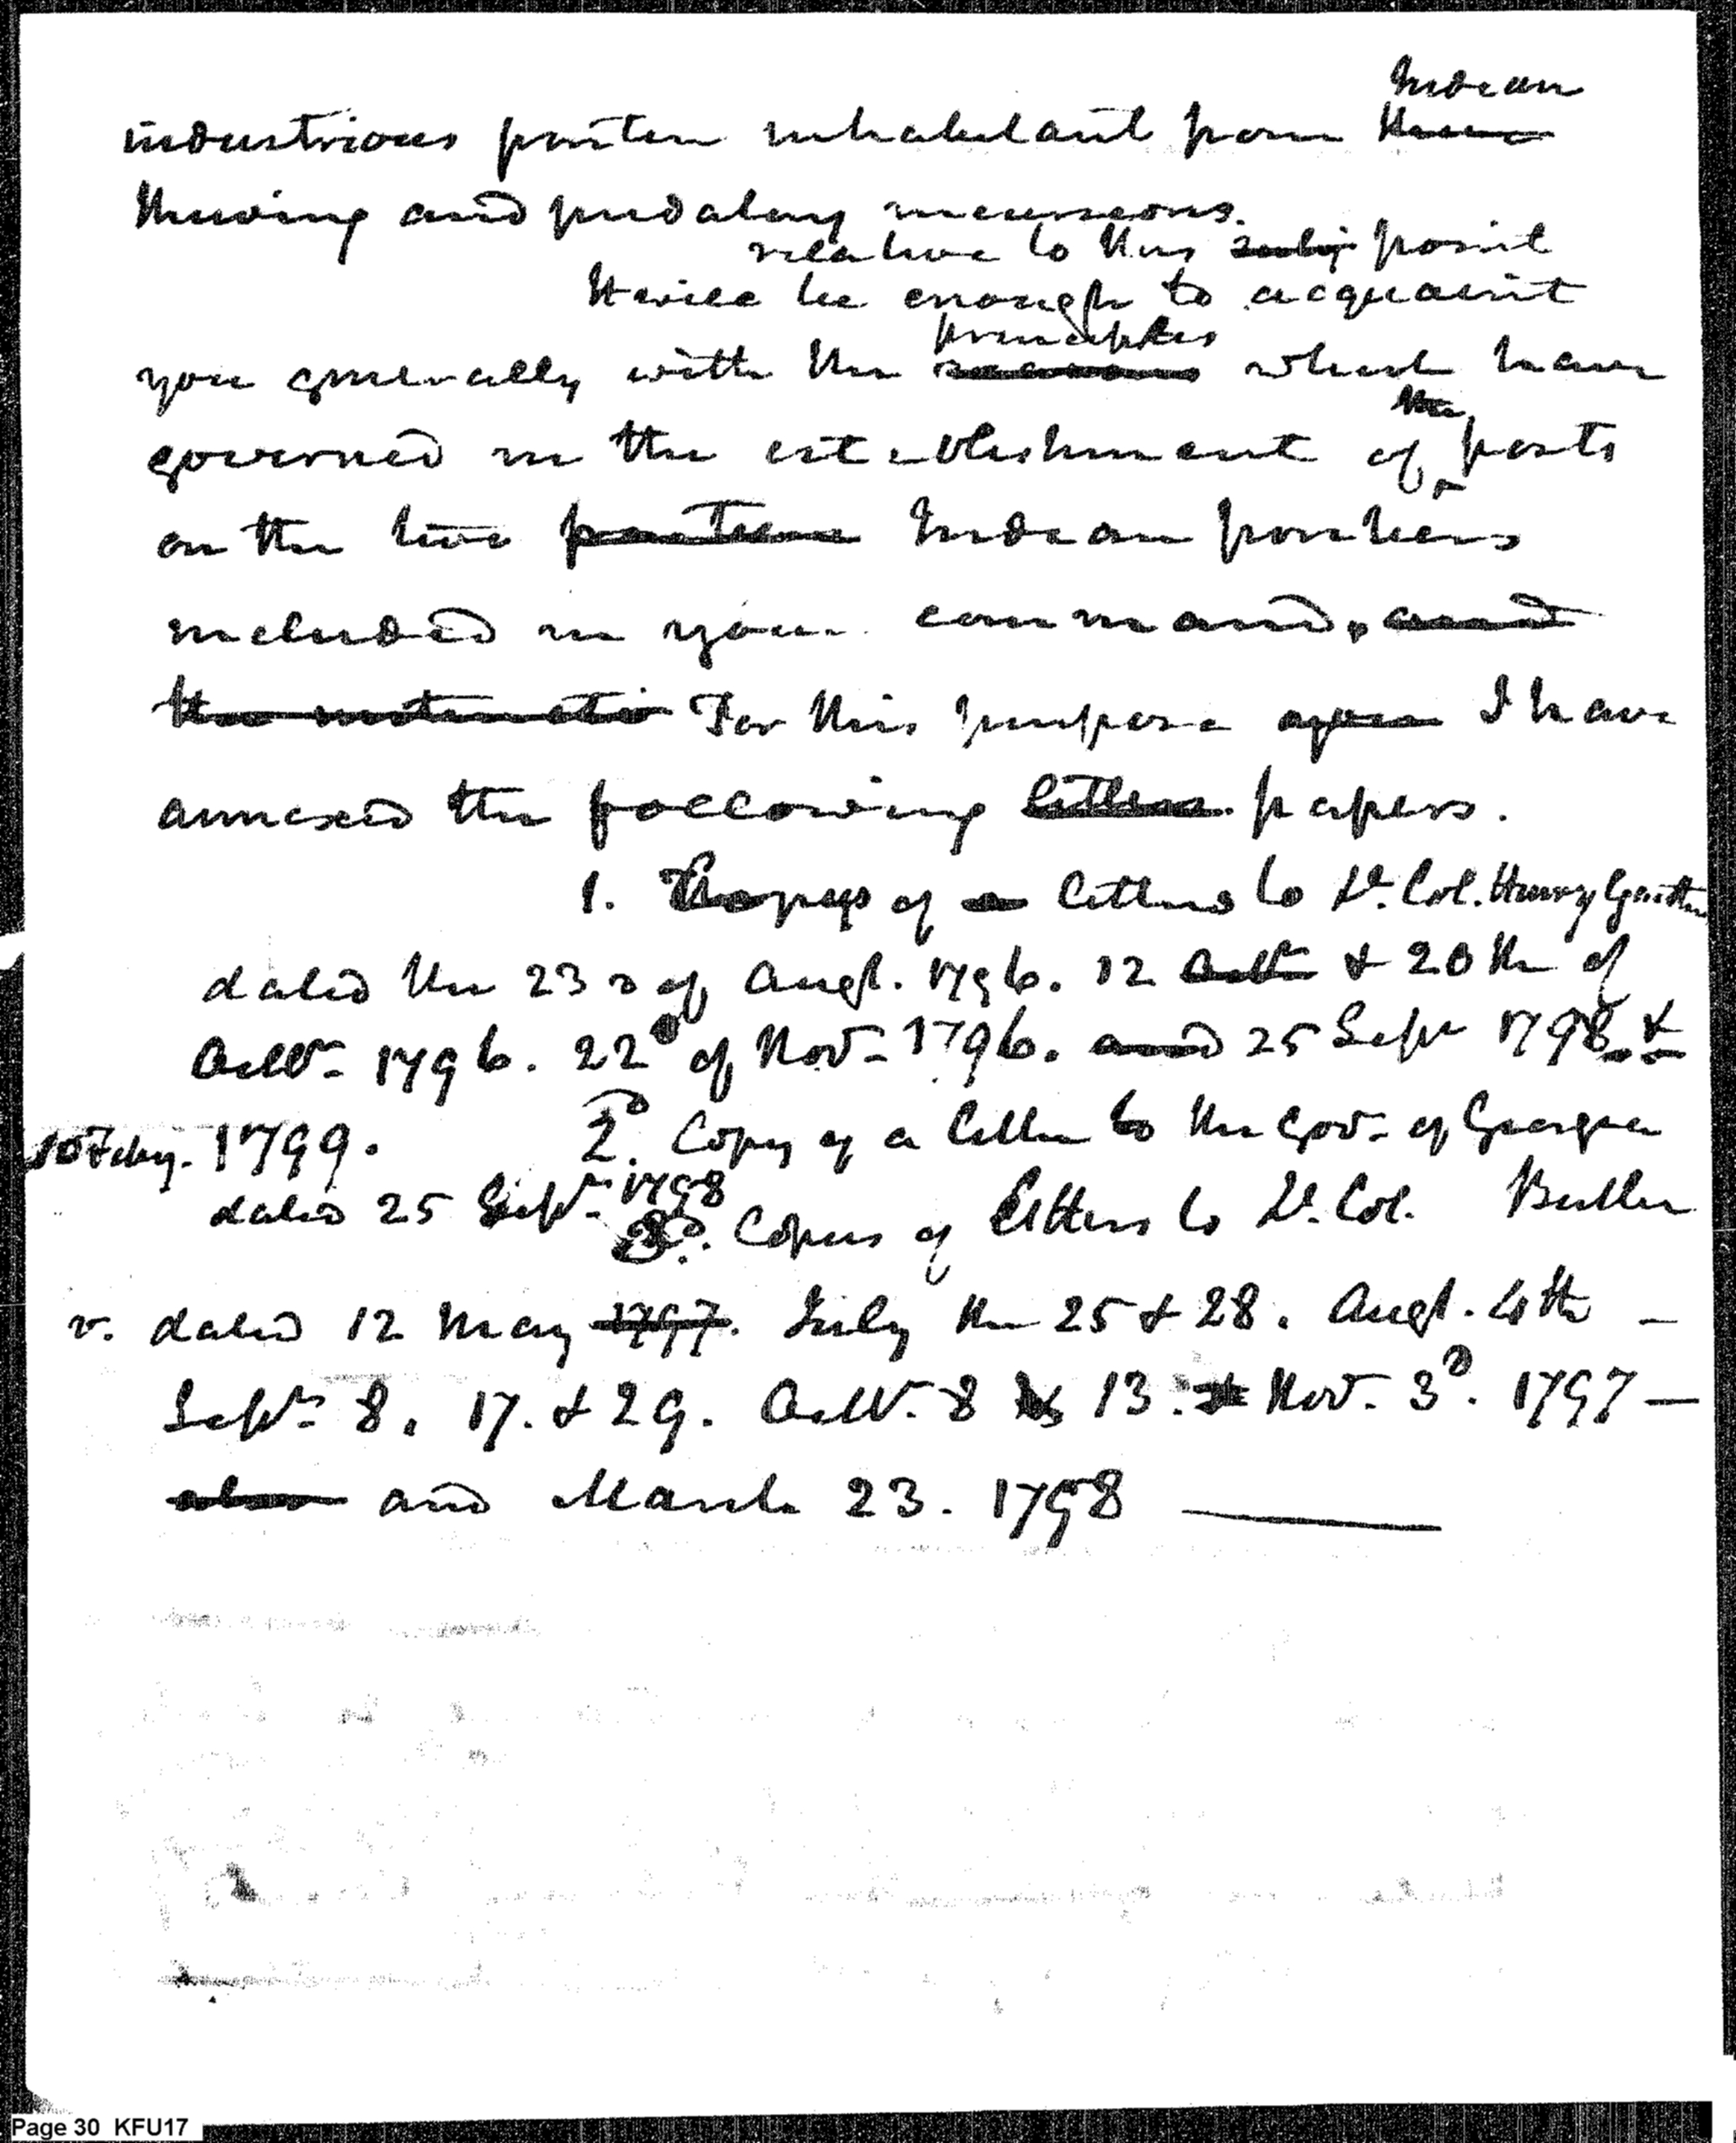 Indian
industrious frontier inhabitant from these
thieving and predatory incursions.
relative to this subj point
It will be enough to acquaint
principles
you generally with the reasons which have
the
governed in the establishment of posts
on the two frontiers Indian frontiers
included in your command, and
the Font this purpose I have
annexed the following letters papers.
1. Copys of a letters to Lt. Col. Henry Gaither
dated the 23d of Augt. 1796. 12 Octr & 20th of
Octbr. 1796. 22d of Novr. 1796. and 25 Sepr 1798 &
10 Feby. 1799. 2d. Copy of a letter to the Govr. of Georgia
dated 25 Sepr. 1798
3d. Copies of letters to Lt. Col. Butler
v. dated 12 May 1797. July the 25 & 28. Augt. 4th -
Sepr. 8. 17. & 29. Octbr. 8 & 13. & Novr. 3d. 1797 —
also and March 23. 1798 ———
Page 30 KFU17